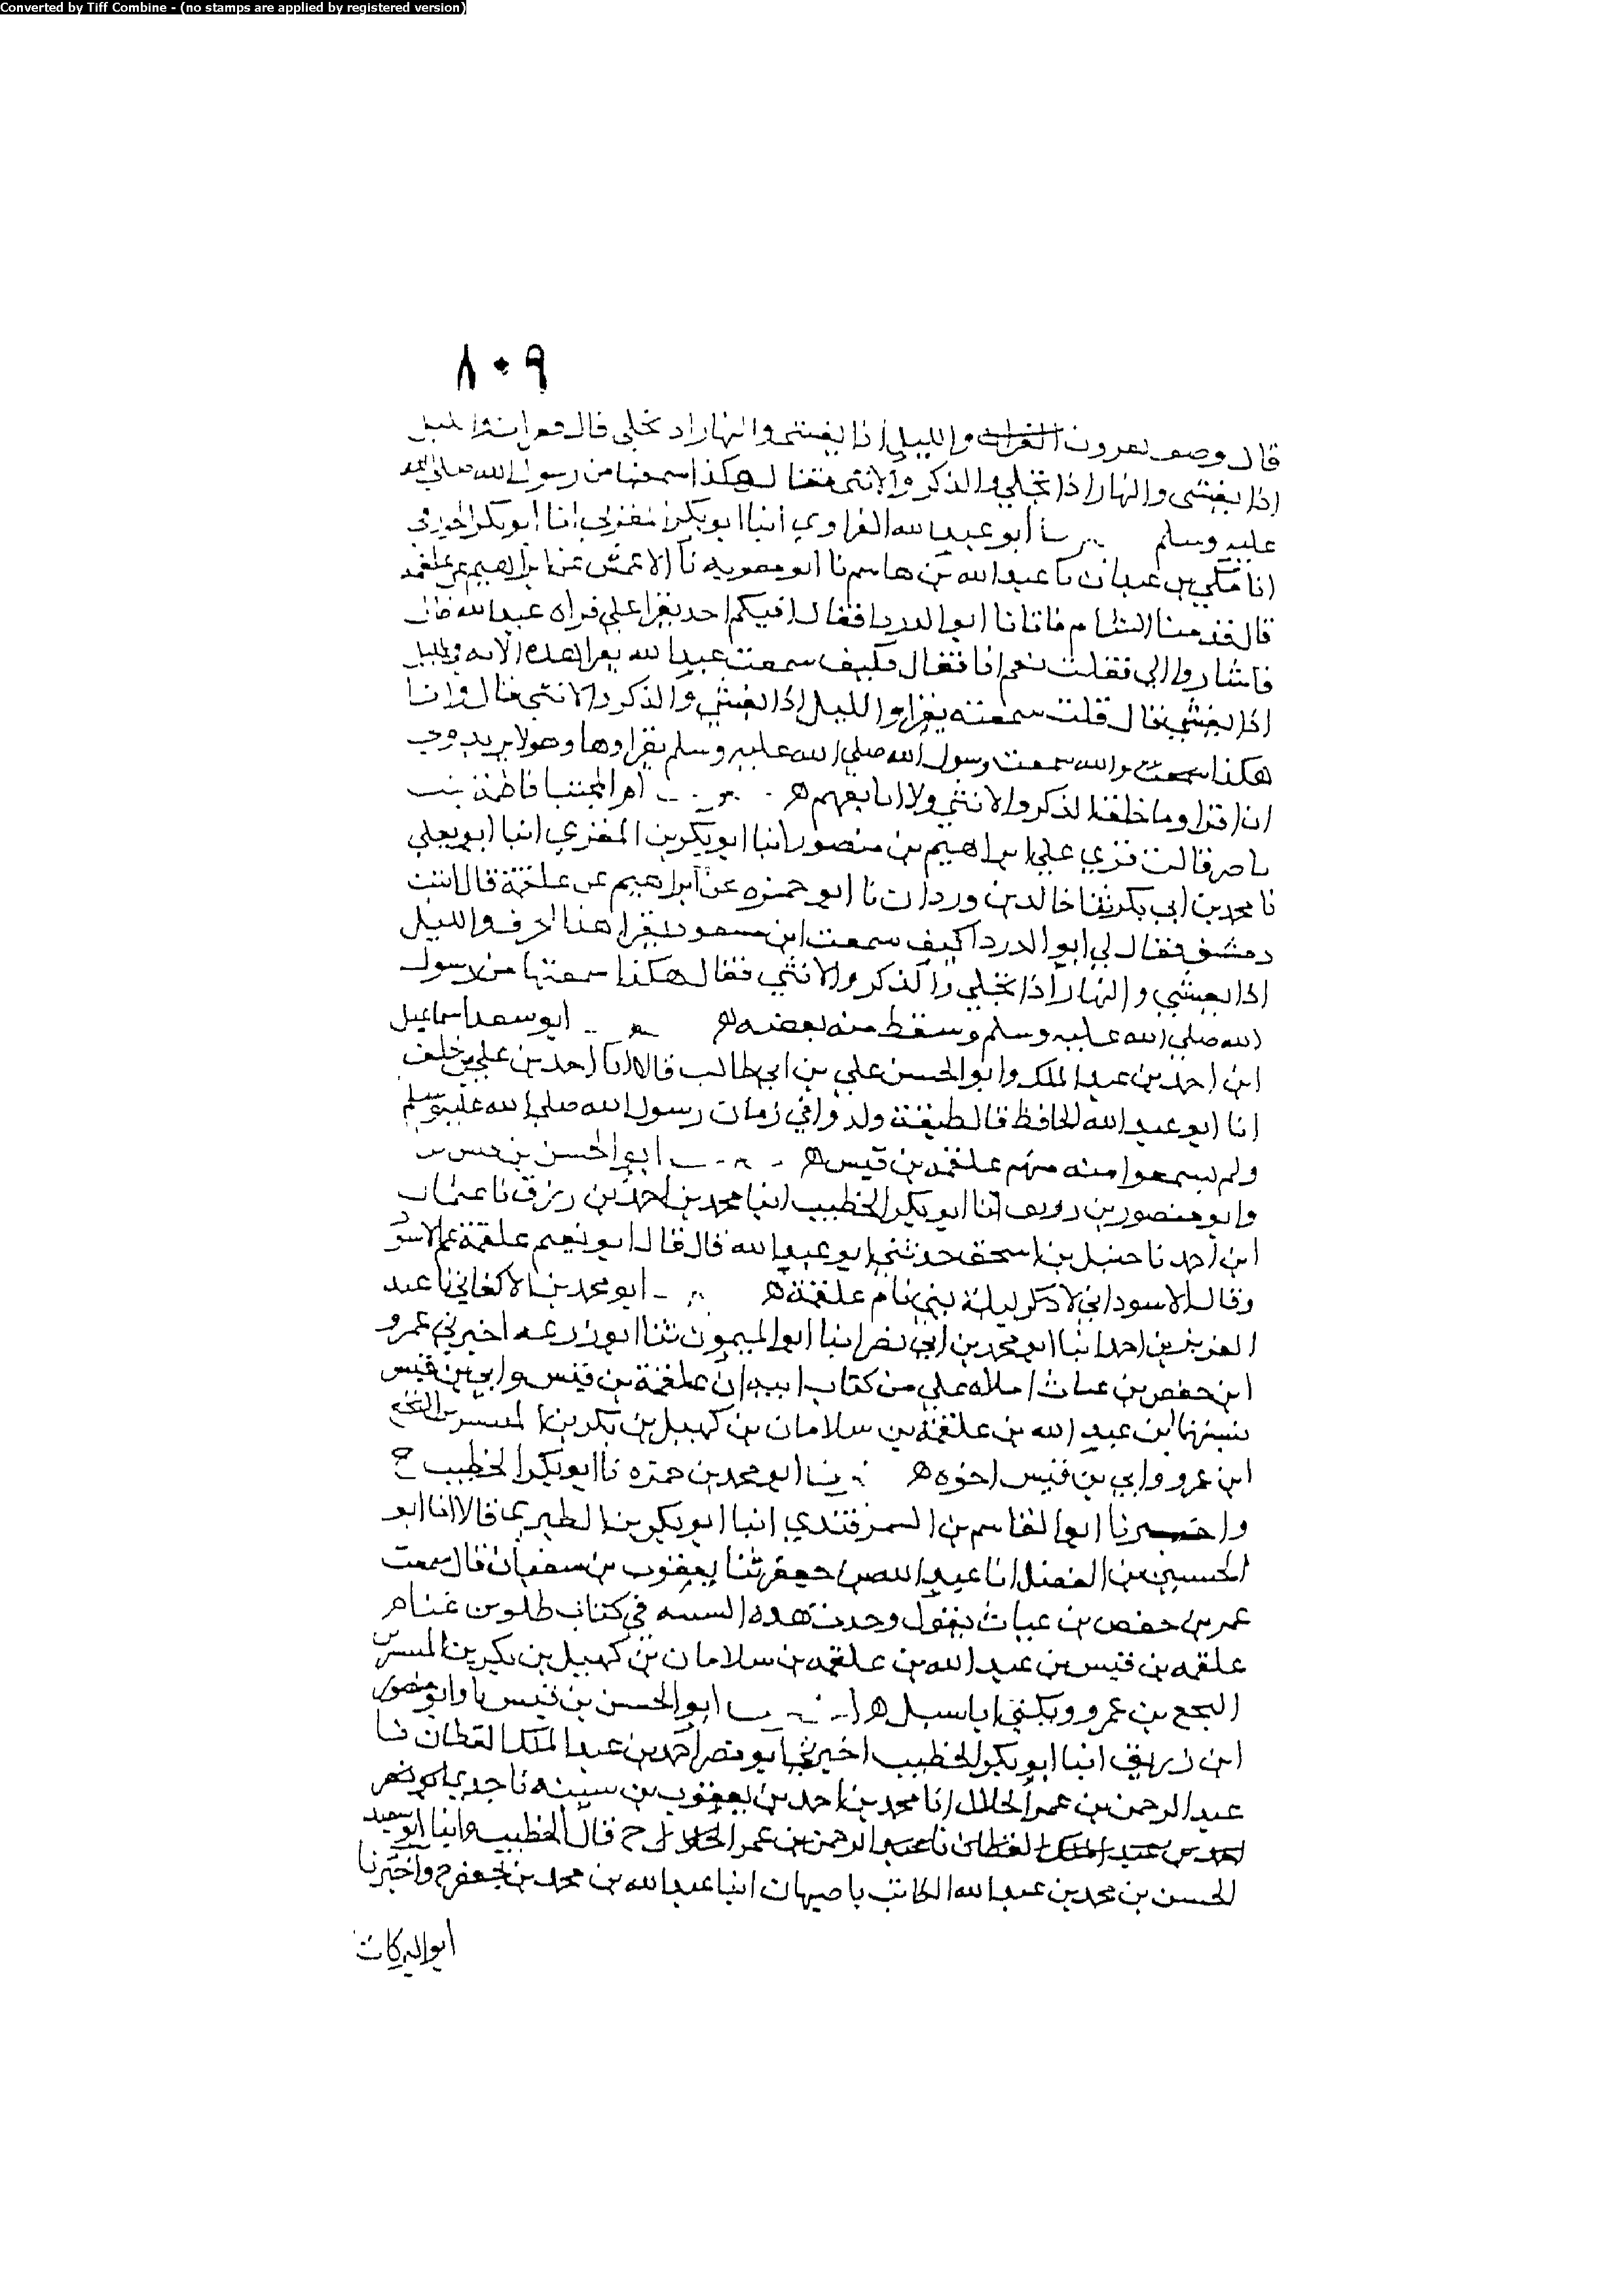 Converted by Tiff Combine - (no stamps are applied by registered version)
٨٠٩
قال وصف تعرون القراه والليل اذا يغشى والنهار اذ تجلى قال
اذا يغشى والنهار اذا تجلي والذكر والانثى فقال هكذا سمعتها من رسول الله صلى الله
عليه وسلم ابو عبد الله الفراوي انبا ابو بكر انا ابو بكر
انا مكي بن عبدان نا عبد الله بن هاسم نا ابو معويه نا الاعمش عن ابراهيم عن علقمه
قال قدمنا الشام فاتانا ابو الدردا فقال افيكم احد يقرا علي قراه عبد الله قال
فاشاروا الي فقلت نعم انا فقال فكيف سمعت عبد الله يقرا هده الايه والليل
اذا يغشي قال قلت سمعته يقرا والليل اذا يغشي والذكر والانثي فقال وانا
هكذا سمعت والله سمعت رسول الله صلي الله عليه وسلم يقراوها وهولا يريدون
ان اقرا وما خلق الذكر والانثي ولا اتابعهم ه ام المجتبا فاطمة بنت
ناصر قالت قري علي ابراهيم بن منصور انبا ابو بكر بن المقري انبا ابو يعلي
نا محمد بن ابي بكر ثنا خالد بن وردان نا ابو حمزه عن ابراهيم عن علقمة قال اتيت
دمشق فقال لي ابو الدردا كيف سمعت ابن مسعود يقرا هذا الحرف والليل
اذا يغشي والنهار اذا تجلي والذكر والانثي فقال هكذا سمعتها من رسول
الله صلي الله عليه وسلم وسقط منه بعضه ه ابو سعد اسماعيل
ابن احمد بن عبد الملك وابو الحسن علي بن ابي طالب قالا انا احمد بن علي بن خلف
انا ابو عبد الله الحافظ قال طبقة ولدوا في زمان رسول الله صلي الله عليه وسلم
ولم يسمعوا منه منهم علقمه بن قيس ه ابو الحسن بن قيس نا
وابو منصور بن زريق انا ابو بكر الخطيب انبا محمد بن احمد بن رزق نا عثمان
ابن احمد نا حنبل بن اسحق حدثني ابو عبد الله قال قال ابو نعيم علقمة عم الاسود
وقال الاسود اني لاذكر ليلة بني بام علقمة ه ابو محمد بن الاكفاني نا عبد
العزيز بن احمد انبا ابو محمد بن ابي نصر انبا ابو الميمون ثنا ابو زرعه اخبرني عمرو
ابن حفص بن غياث املاه علي من كتاب ابيه ان علقمة بن قيس وابي بن قيس
نسبتهما ابن عبد الله بن علقمة بن سلامان بن كهيل بن بكر بن المنتشر بن النخع
ابن عمرو وابي بن قيس اخوه ه نا ابو محمد بن حمزه نا ابو بكر الخطيب ح
واخبرنا ابو القاسم بن السمرقندي انبا ابو بكر بن الطبري قالا انا ابو
الحسين بن الفضل انا عبد الله بن جعفر ثنا يعقوب بن سفيان قال سمعت
عمر بن حفص بن غياث يقول وجدت هذه النسبه في كتاب طلق بن غنام
علقمه بن قيس بن عبد الله بن علقمه بن سلامان بن كهيل بن بكر بن المنتشر
النخع بن عمرو ويكني ابا سبل ه ابو الحسن بن قيس نا وابو منصور
ابن زريق انبا ابو بكر الخطيب اخبرني ابو نصر احمد بن عبد الملك القطان نا
عبد الرحمن بن عمر الخلال انا محمد بن احمد بن يعقوب بن شيبه نا جدي ابو نصر
احمد بن عبد الملك القطان نا عبد الرحمن بن عمر الخلال ح قال الخطيب وانبا ابو سعيد
الحسن بن محمد بن عبد الله الكاتب باصبهان انبا عبد الله بن محمد بن جعفر ح واخبرنا
ابو البركات